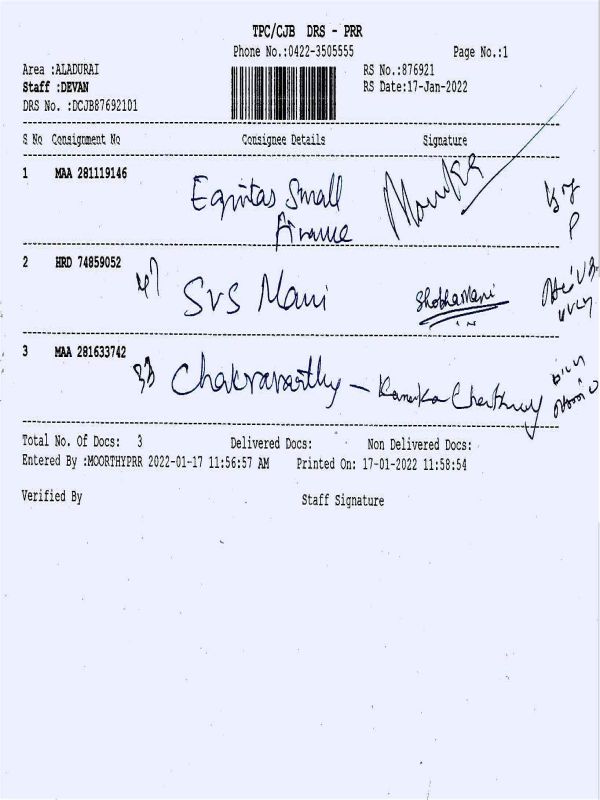 TPC/CJB DRS - PRR
Phone No.:0422-3505555 Page No.:1
Area :ALADURAI RS No.:876921
Staff :DEVAN RS Date:17-Jan-2022
DRS No. :DCJB87692101
S No Consignment No Consignee Details Signature
1 MAA 281119146 Equitas Small
Finance
2 HRD 74859052 47 SVS Mani ShobhaMani
3 MAA 281633742 Chakravarthy -
Total No. Of Docs: 3 Delivered Docs: Non Delivered Docs:
Entered By :MOORTHYPRR 2022-01-17 11:56:57 AM Printed On: 17-01-2022 11:58:54
Verified By Staff Signature